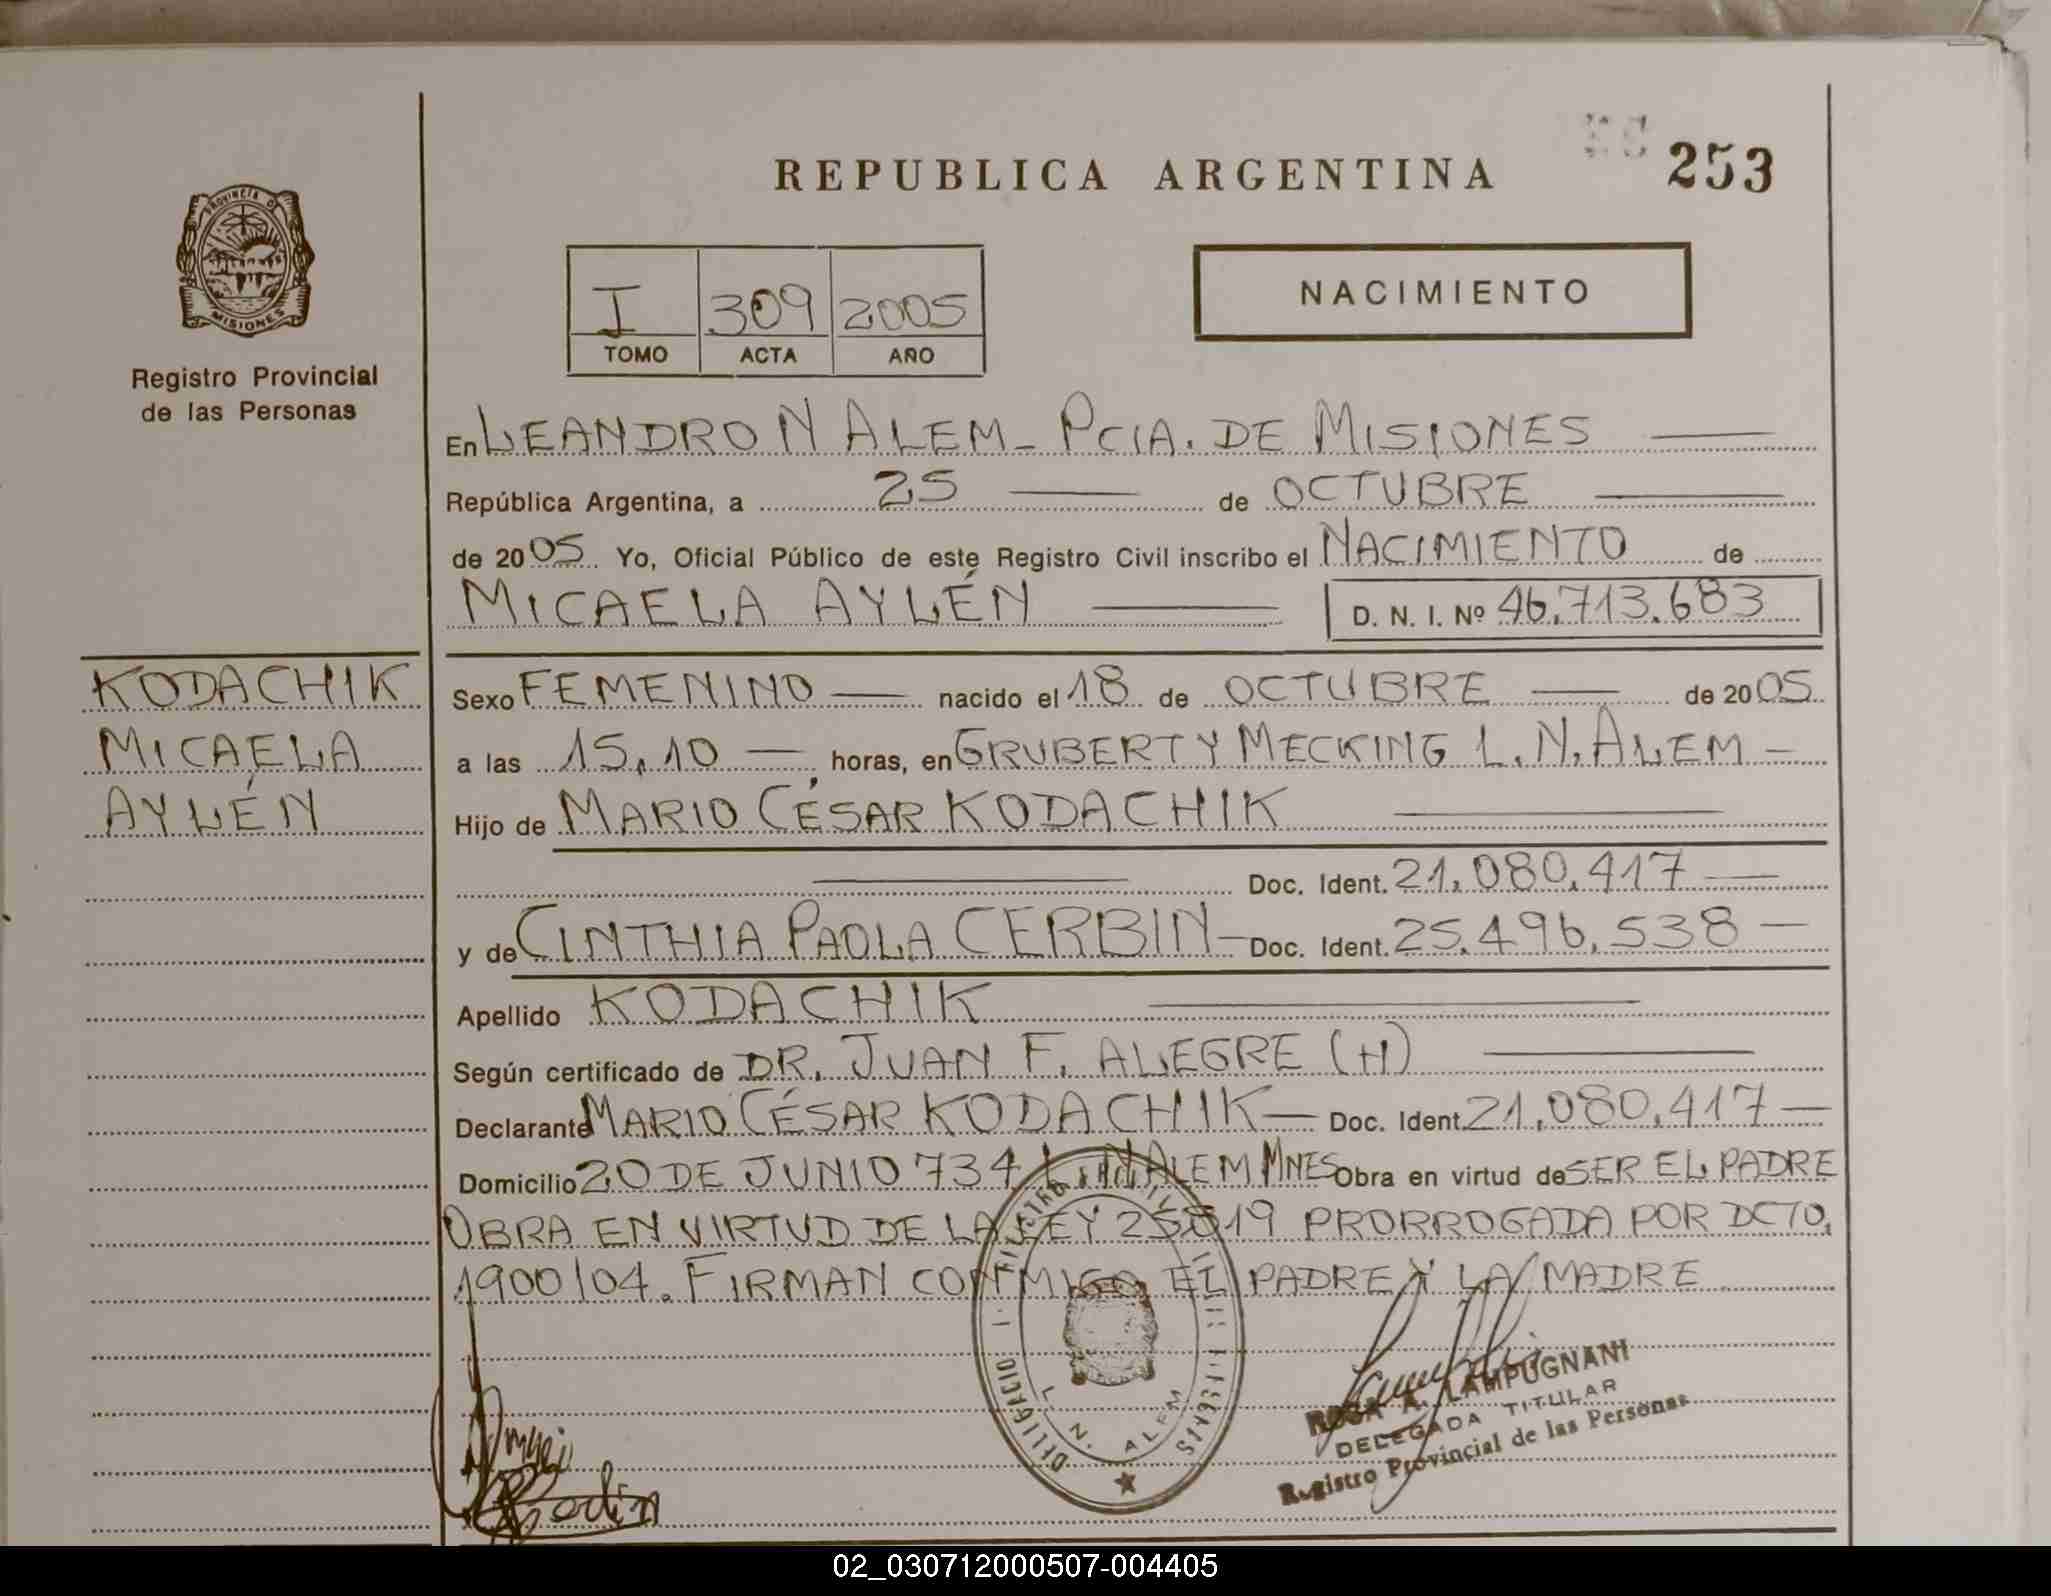 REPUBLICA ARGENTINA
253
PROVINCIA DE
MISIONES
Registro Provincial
de las Personas
I 309 2005
TOMO ACTA AÑO
NACIMIENTO
En LEANDRO N ALEM - PCIA. DE MISIONES
República Argentina, a 25 de OCTUBRE
de 2005 Yo, Oficial Público de este Registro Civil inscribo el NACIMIENTO de
MICAELA AYLÉN D. N. I. Nº 46.713.683
KODACHIK
MICAELA
AYLÉN
Sexo FEMENINO nacido el 18 de OCTUBRE de 2005
a las 15,10 horas, en GRUBERT Y MECKING L. N. ALEM -
Hijo de MARIO CÉSAR KODACHIK
Doc. Ident. 21.080.417
y de CINTHIA PAOLA CERBIN - Doc. Ident. 25.496.538 -
Apellido KODACHIK
Según certificado de DR. JUAN F. ALEGRE (H)
Declarante MARIO CÉSAR KODACHIK - Doc. Ident. 21.080.417 -
Domicilio 20 DE JUNIO 734 L. N ALEM MNES Obra en virtud de SER EL PADRE
OBRA EN VIRTUD DE LA LEY 25819 PRORROGADA POR DCTO.
1900/04. FIRMAN CONMIGO EL PADRE Y LA MADRE
L. N. ALEM
ROSA A. LAMPUGNANI
DELEGADA TITULAR
Registro Provincial de las Personas
02_030712000507-004405